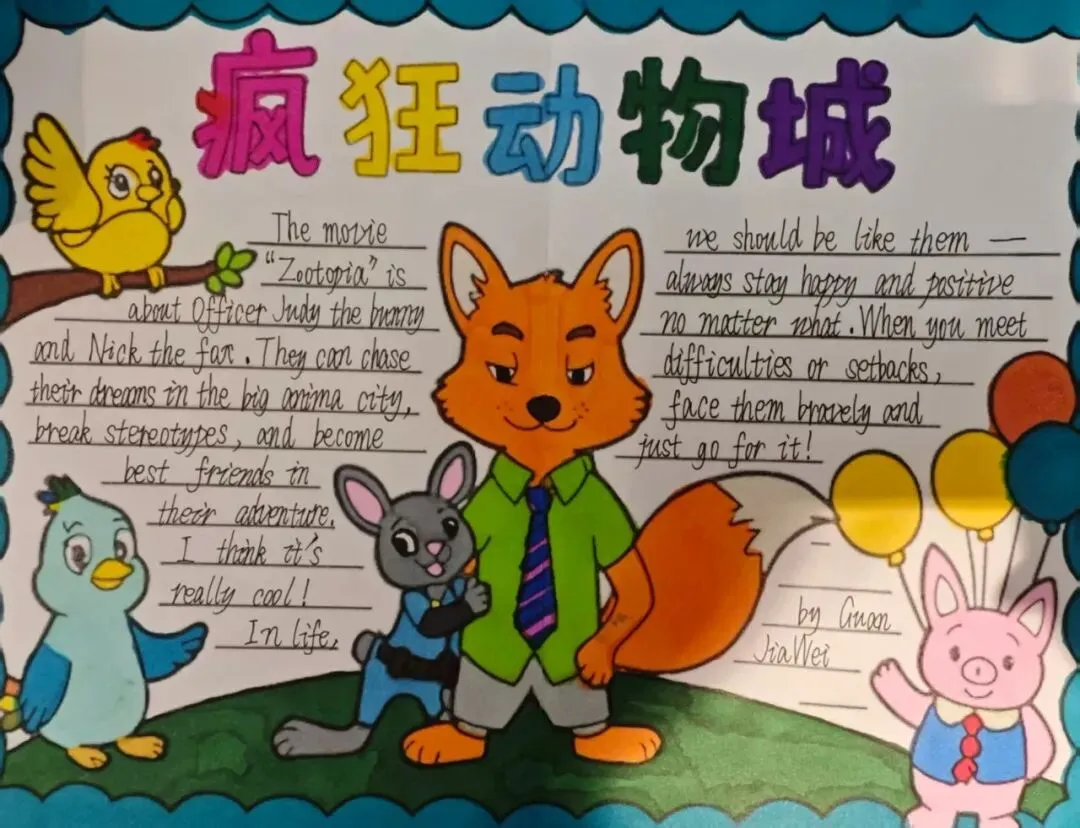 疯狂动物城
The movie
"Zootopia" is
about Officer Judy the bunny
and Nick the fox. They can chase
their dreams in the big anima city,
break stereotypes, and become
best friends in
their adventure.
I think it's
really cool!
In life,
we should be like them —
always stay happy and positive
no matter what. When you meet
difficulties or setbacks,
face them bravely and
just go for it!
by Guan
JiaWei